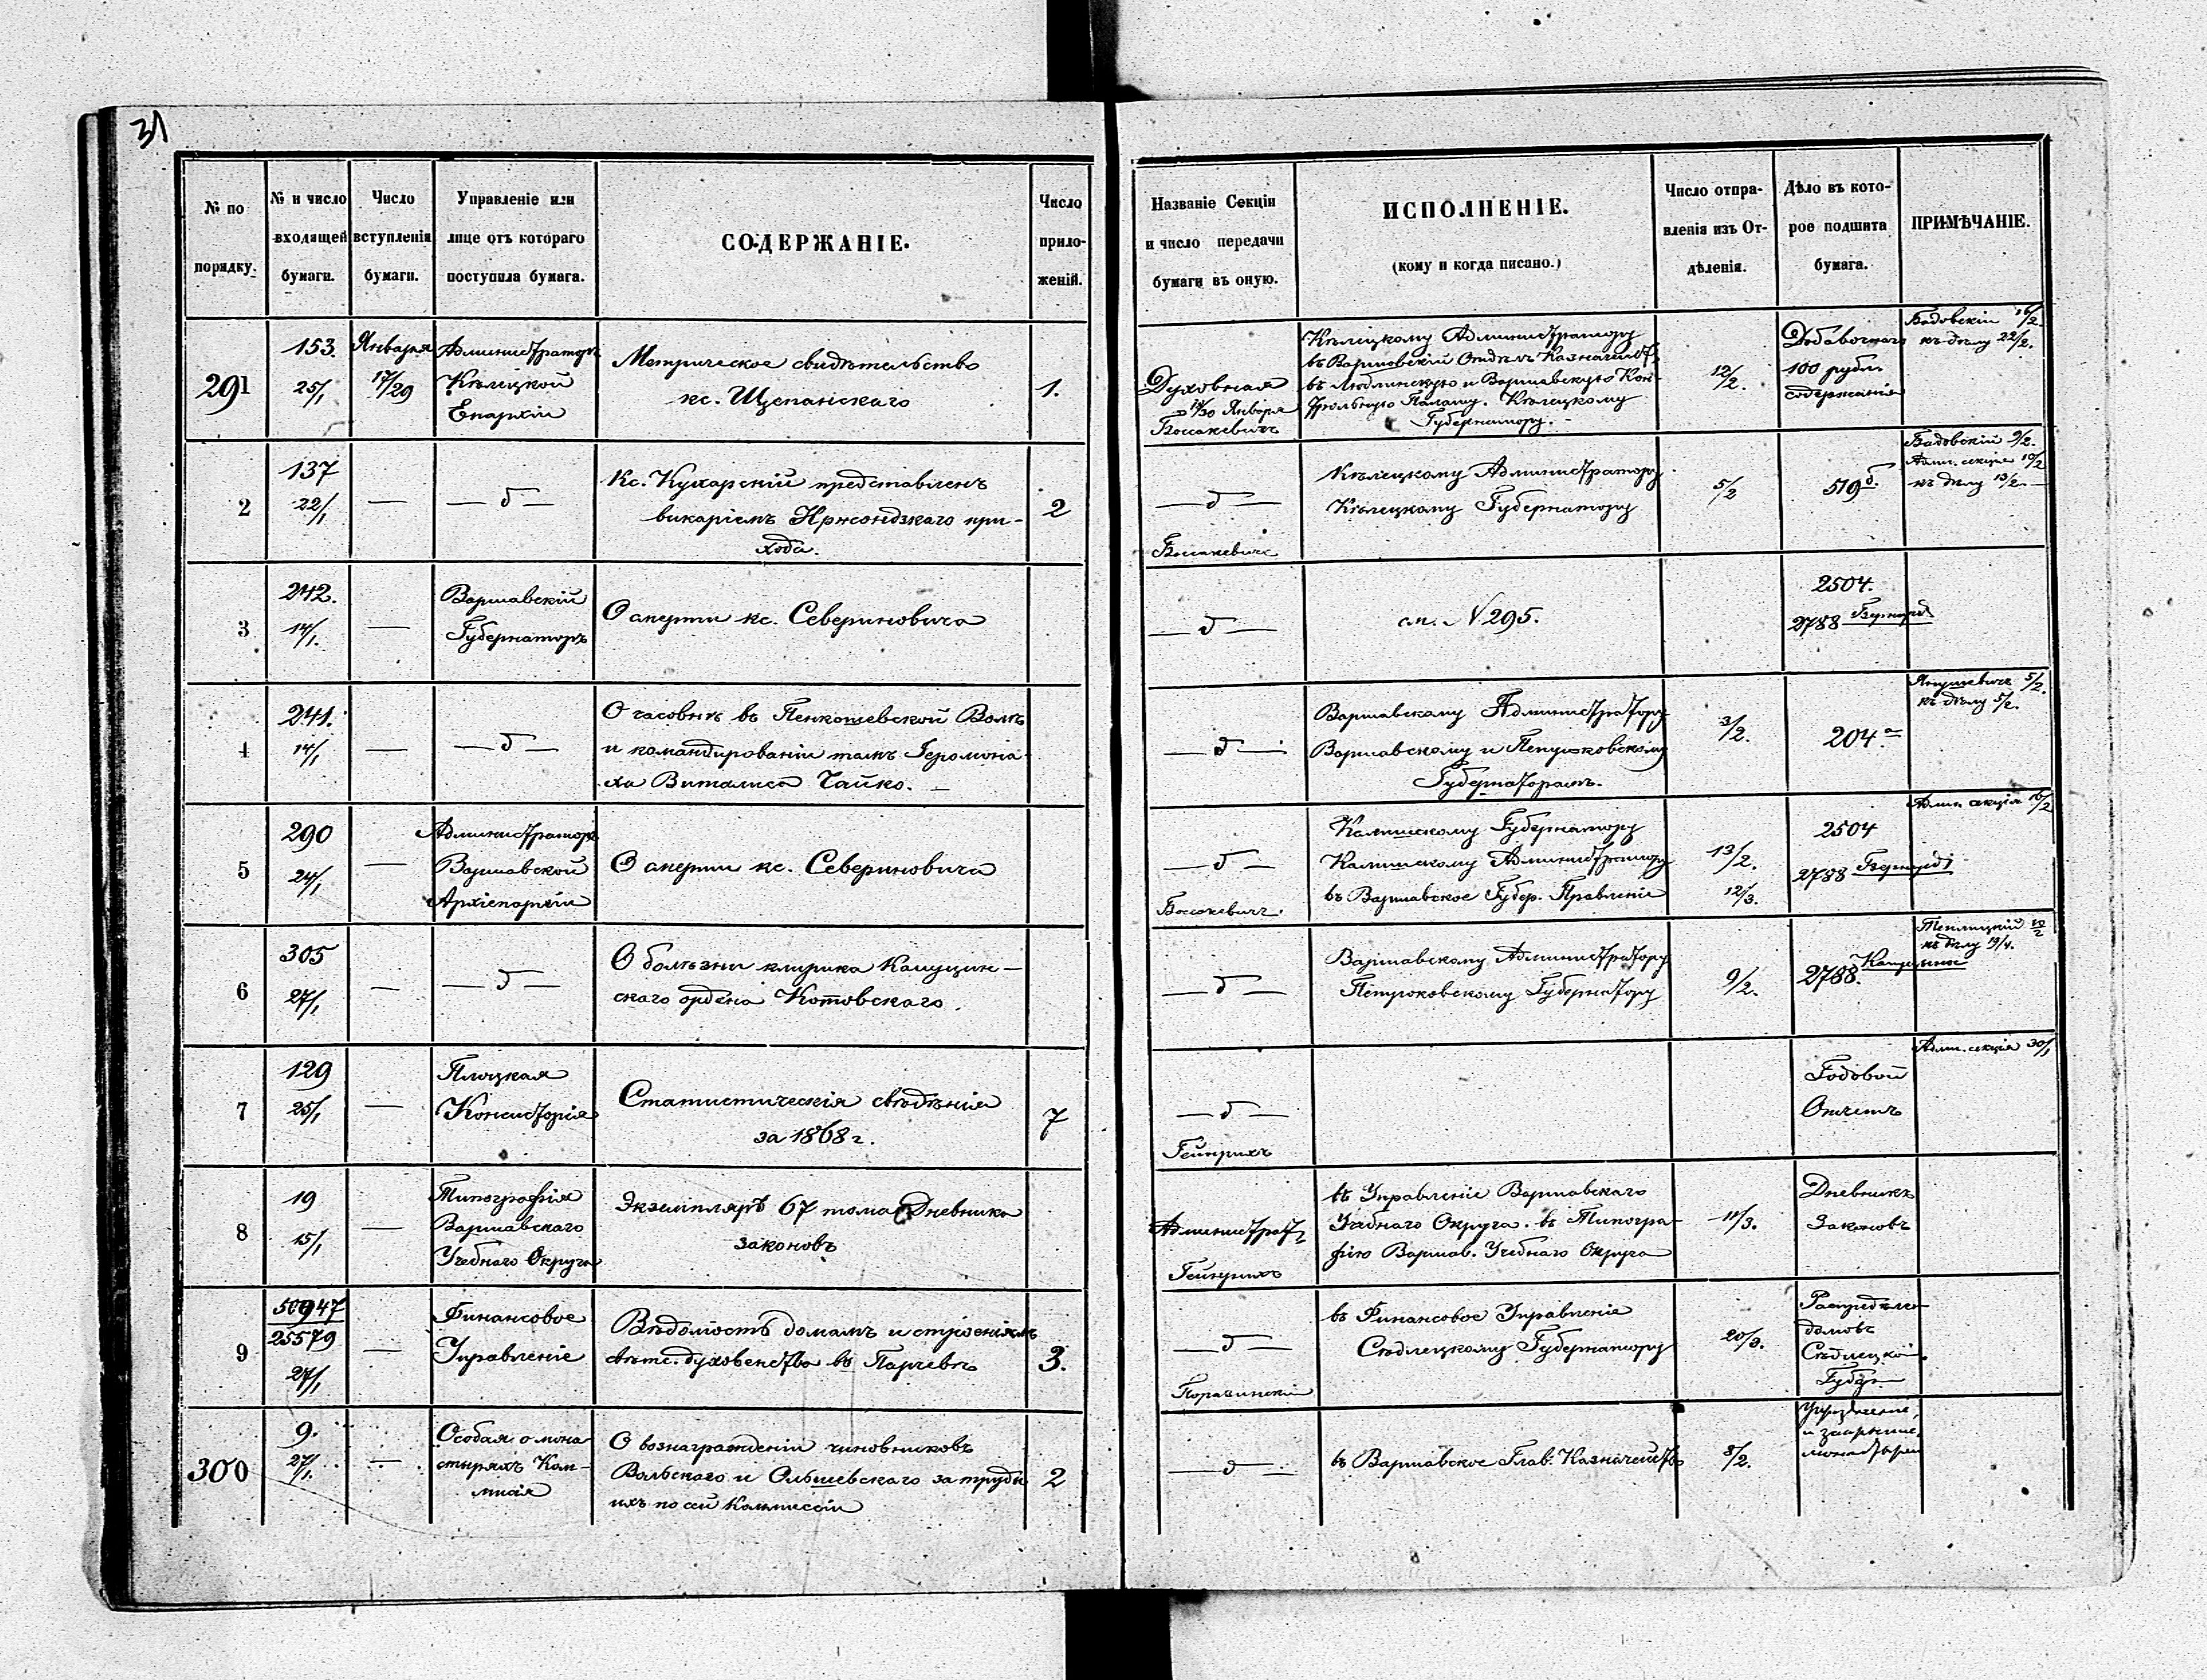 31
№ по
порядку.
№ и число
входящей
бумаги.
Число
вступленія
бумаги.
Управленіе или
лице отъ котораго
поступила бумага.
СОДЕРЖАНІЕ.
Число
прило-
женій.
Названіе Секціи
и число передачи
бумаги въ оную.
ИСПОЛНЕНІЕ.
(кому и когда писано.)
Число отпра-
вленія изъ От-
дѣленія.
Дѣло въ кото-
рое подшита
бумага.
ПРИМѢЧАНІЕ.
291
153.
25/1
Января
17/29
Администраторъ
Кѣлецкой
Епархіи
Метрическое свидѣтельство
кс. Щепанскаго
1.
Духовная
18/30 Января
Босакевичъ
Кѣлецкому Администратору
въ Варшавскій Отдѣлъ Казначейст.
въ Люблинскую и Варшавскую Кон-
трольную Палату. Кѣлецкому
Губернатору.
12/2.
Добавочнаго
100 рубл.
содержанія
Бадовскій 16/2.
къ дѣлу 22/2.
2
137
22/1
— " —
— д —
Кс. Кухарскій представленъ
викаріемъ Кржондзкаго при-
хода.
2
— д —
Босакевичъ
Кѣлецкому Администратору
Кѣлецкому Губернатору
5/2
519 б.
Бадовскій 9/2.
Адм. секція 10/2
къ дѣлу 13/2.
3
242.
14/1.
—
Варшавскій
Губернаторъ
О смерти кс. Севериновича
— д —
см. № 295.
2504.
2788 Бернард
4
241.
14/1
—
— д —
О часовнѣ въ Пенкошевской Волѣ
и командированіи тамъ Іеромона-
ха Виталиса Чайко.
— д —
Варшавскому Администратору
Варшавскому и Петроковскому
Губернаторамъ.
3/2.
204 а
Янушевичъ 5/2.
къ дѣлу 5/2.
5
290
24/1
—
Администраторъ
Варшавской
Архіепархіи
О смерти кс. Севериновича
— д —
Босакевичъ.
Калишскому Губернатору
Калишскому Администратору
въ Варшавское Губер. Правленіе
13/2.
12/3.
2504
2788 Бернард
Адм. секція 16/2
6
305
27/1
—
— д —
О болѣзни клирика Капуцин-
скаго ордена Котовскаго.
— д —
Варшавскому Администратору
Петроковскому Губернатору
9/2.
2788. Капуцины
къ дѣлу 19/4.
7
129
25/1
—
Плоцкая
Консисторія
Статистическія свѣдѣнія
за 1868 г.
7
— д —
Гейнрихъ
Годовой
Отчетъ
Адм. секція 30/1
8
19
15/1
—
Типографія
Варшавскаго
Учебнаго Округа
Экземпляръ 67 тома Дневника
законовъ
Администрат.
Гейнрихъ
въ Управленіе Варшавскаго
Учебнаго Округа. въ Типогра-
фію Варшав. Учебнаго Округа
11/3.
Дневникъ
Законовъ
9
50947
25579
27/1
—
Финансовое
Управленіе
Вѣдомость домамъ и строеніямъ
свѣтс. духовенства въ Парчевѣ
3.
— д —
въ Финансовое Управленіе
Сѣдлецкому Губернатору
20/3.
домовъ
Сѣдлецкой
Губер.
300
9.
27/1.
—
Особая о мона-
стыряхъ Ком-
мисія
О вознагражденіи чиновниковъ
Вольскаго и Ольшевскаго за труды
ихъ по сей Коммиссіи
2
— д —
въ Варшавское Глав. Казначейство
8/2.
и закрытіе
монастырей